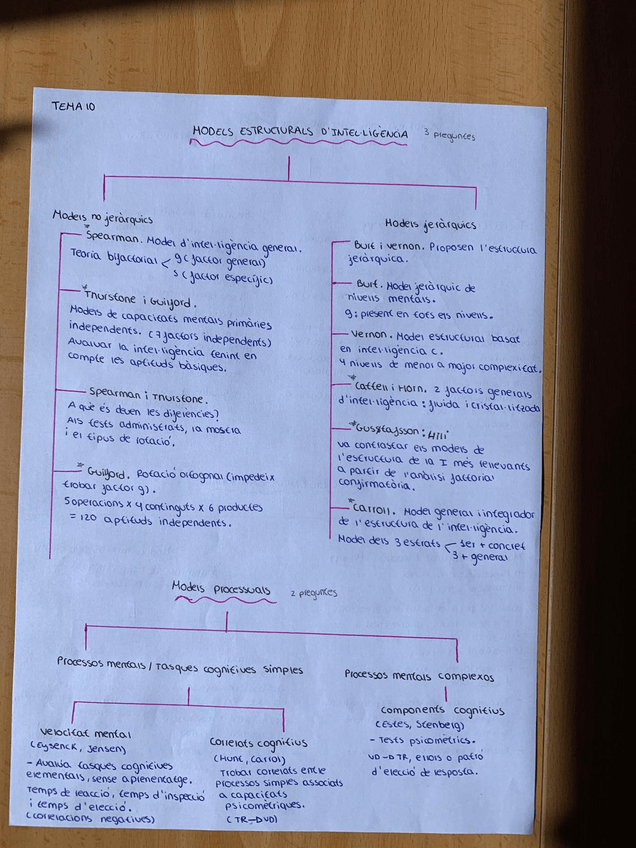 TEMA 10
MODELS ESTRUCTURALS D'INTEL·LIGÈNCIA 3 preguntes
Models no jeràrquics
*Spearman. Model d'intel·ligència general.
Teoria bifactorial < g (factor general)
s (factor específic)
*Thurstone i Guilford.
Models de capacitats mentals primàries
independents. (7 factors independents)
Avaluar la intel·ligència tenint en
compte les aptituds bàsiques.
Spearman i Thurstone.
A què és deuen les diferències?
Als tests administrats, la mostra
i el tipus de rotació.
*Guilford. Rotació ortogonal (impedeix
trobar factor g).
5 operacions x 4 continguts x 6 productes
= 120 aptituds independents.
Models jeràrquics
Burt i Vernon. Proposen l'estructura
jeràrquica.
*Burt. Model jeràrquic de
nivells mentals.
g: present en tots els nivells.
Vernon. Model estructural basat
en intel·ligència C.
4 nivells de menor a major complexitat.
*Cattell i Horn. 2 factors generals
d'intel·ligència: fluida i cristal·litzada
*Gustafsson: HILI
va contrastar els models de
l'estructura de la I més rellevants
a partir de l'anàlisi factorial
confirmatòria.
*Carroll. Model general i integrador
de l'estructura de l'intel·ligència.
Model dels 3 estrats < 1er + concret
3 + general
Models processuals 2 preguntes
Processos mentals / Tasques cognitives simples
Velocitat mental
(Eysenck, Jensen)
- Avalua tasques cognitives
elementals, sense aprenentatge.
Temps de reacció, temps d'inspecció
i temps d'elecció.
(correlacions negatives)
Correlats cognitius
(Hunt, Carrol)
Trobar correlats entre
processos simples associats
a capacitats
psicomètriques.
(TR-DVD)
Processos mentals complexos
Components cognitius
(Estes, Stenberg)
- Tests psicomètrics.
VD-D TR, errors o patró
d'elecció de resposta.